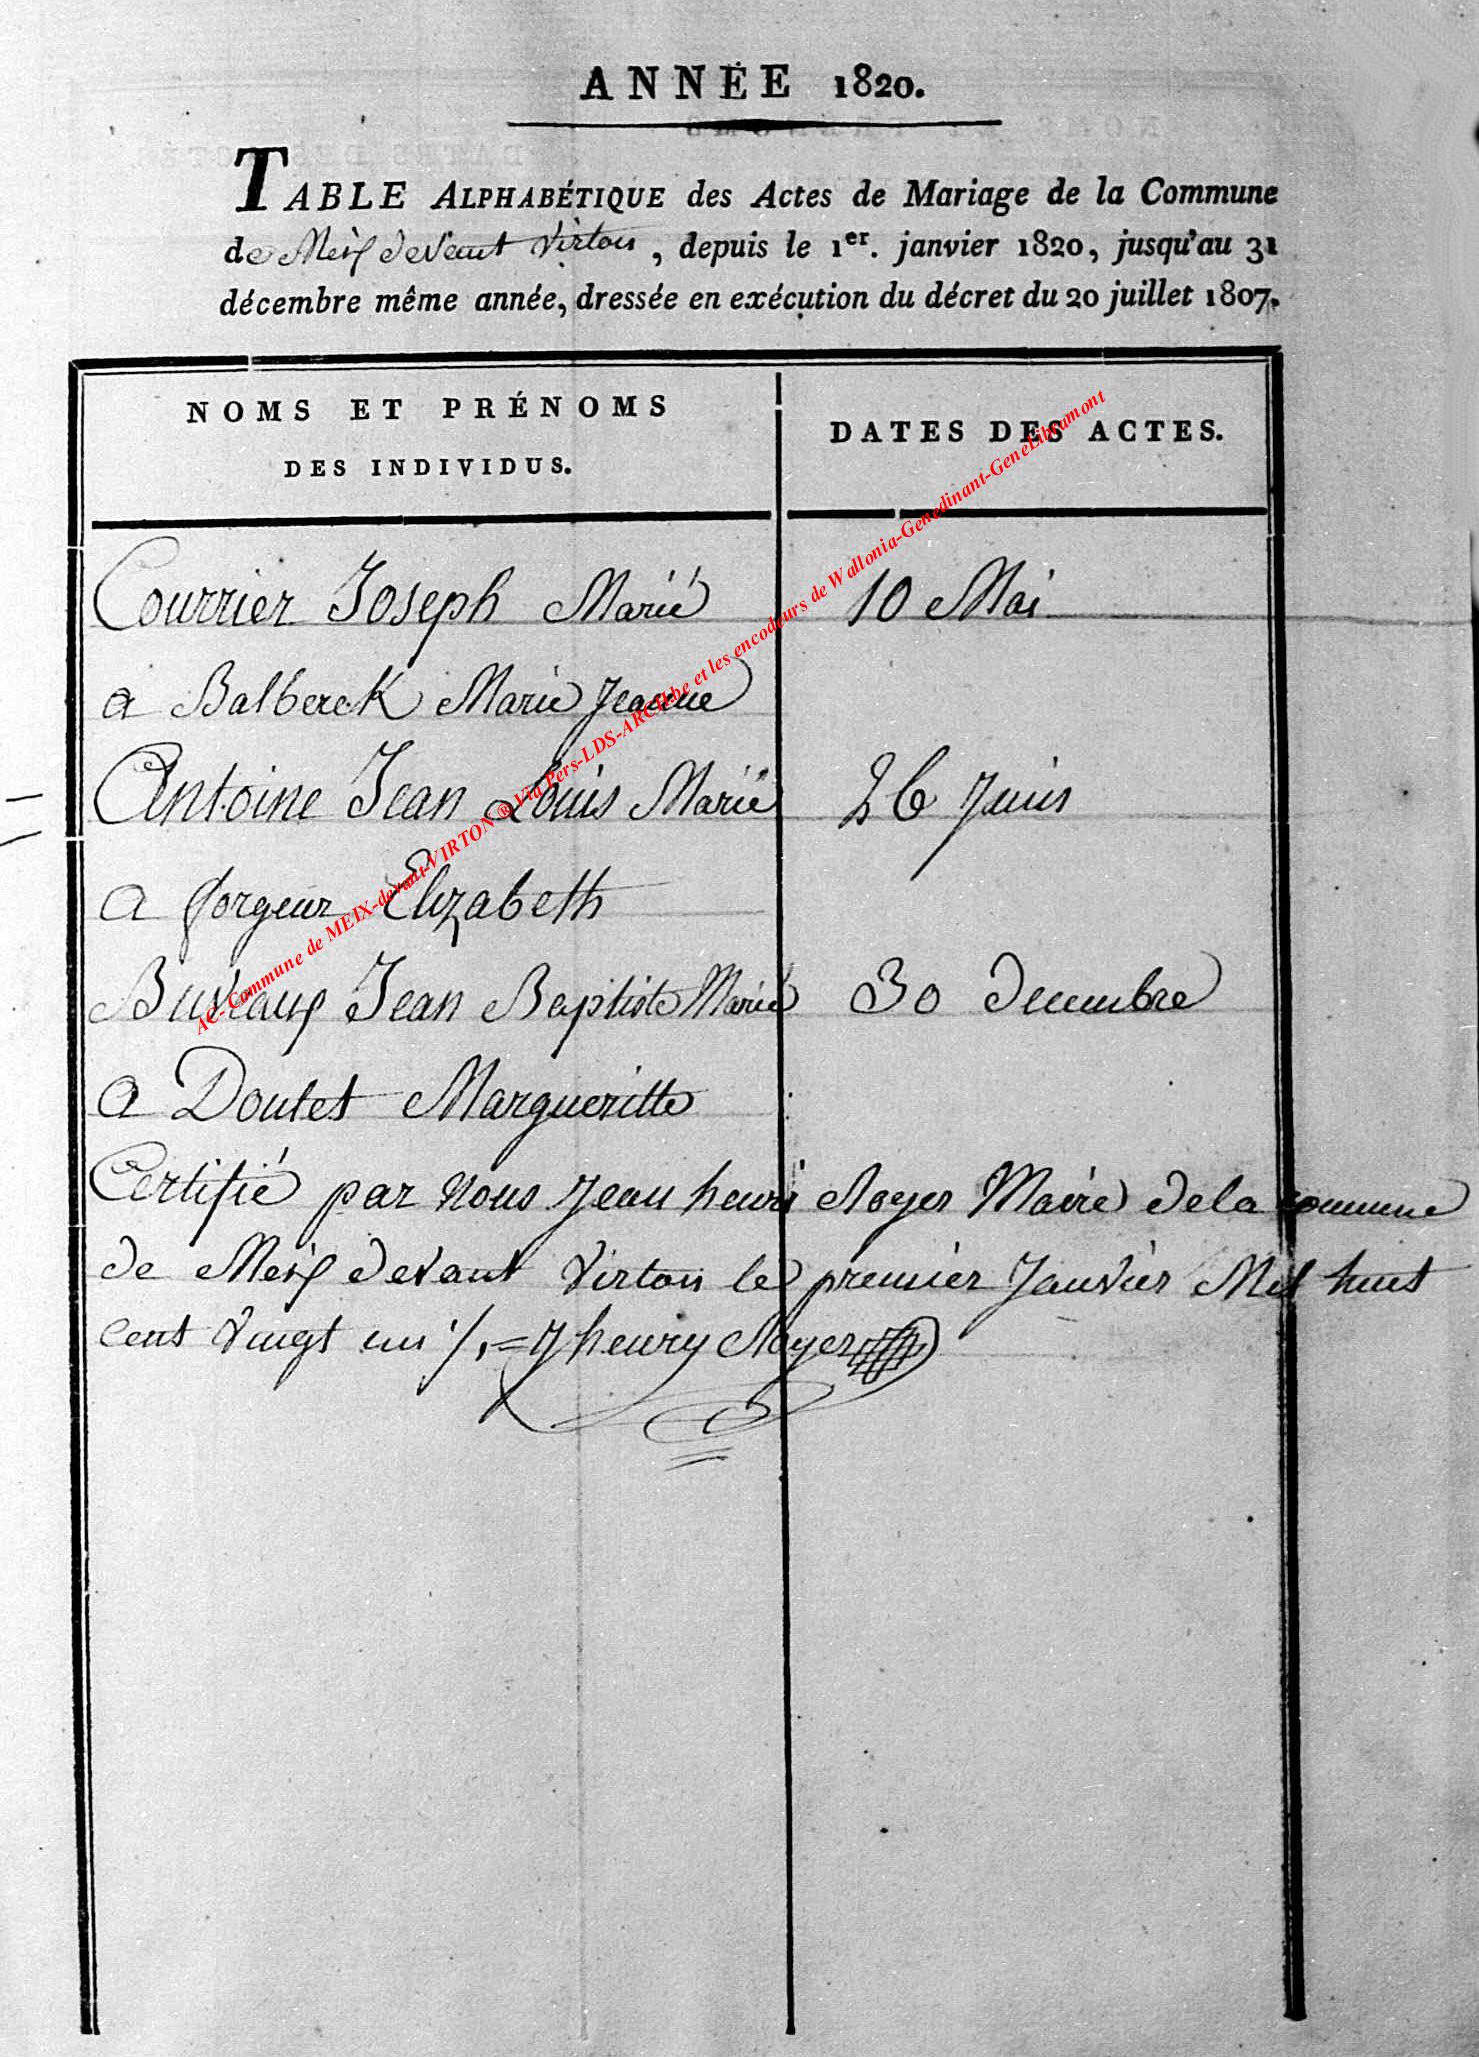 ANNÉE 1820.
TABLE ALPHABÉTIQUE des Actes de Mariage de la Commune
de Meix devant Virton, depuis le 1er. janvier 1820, jusqu'au 31
décembre même année, dressée en exécution du décret du 20 juillet 1807.
NOMS ET PRÉNOMS
DES INDIVIDUS.
DATES DES ACTES.
Courrier Joseph Marié 10 Mai
a Balberck Marie Jeanne
Antoine Jean Louis Marié 26 Juin
a forgeur Elizabeth
Buveaux Jean Baptiste Marié 30 Decembre
a Doutet Margueritte
Certifié par nous Jean henri Noyer Maire de la commune
de Meix devant Virton le premier Janvier Mil huit
cent vingt un ./. = J henry Noyer
AC-Commune de MEIX-devant-VIRTON ® Via Pers-LDS-ARCH.be et les encodeurs de Wallonia-Genedinant-GeneLibramont